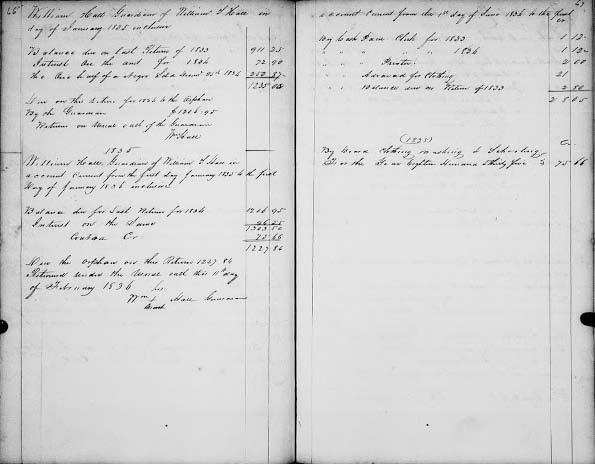 66
William Hall Guardian of William T Hall in
day of January 1835 inclusive
Balance due on Last Return of 1833 911 25
Interest on the amt for 1834 72 90
the One half of a Negro Sold 1834 250 87
1235 02
Due on this return for 1834 to the Orphan
By the Guardian $1206.95
Return on Usual oath of the Guardian
Wm Hall
1835
William Hall, Guardian of William T Hall in
account current from the first day January 1835 to the first
day of January 1836 inclusive
Balance due for Last Return for 1834 1206 95
Interest on the Same 96 55
1303 50
Contra Cr 75 66
1227 84
Due the Orphan on this Return 1227.84
Returned under the Usual oath this 11th day
of February 1836
his
Wm Hall Guardian
mark
67
account current from the 1st day of Janu 1834 to the first
Cr
By Cash Paid Clerk for 1833 1 12
" " " " " 1834 1 12
" " 2 00
" " Advanced for Clothing 21
" " Balance due on Return of 1833 2 80
28 05
(1835) Cr
By Board Clothing washing & Schooling
for the Year Eighteen Hundred & thirty five 75 66